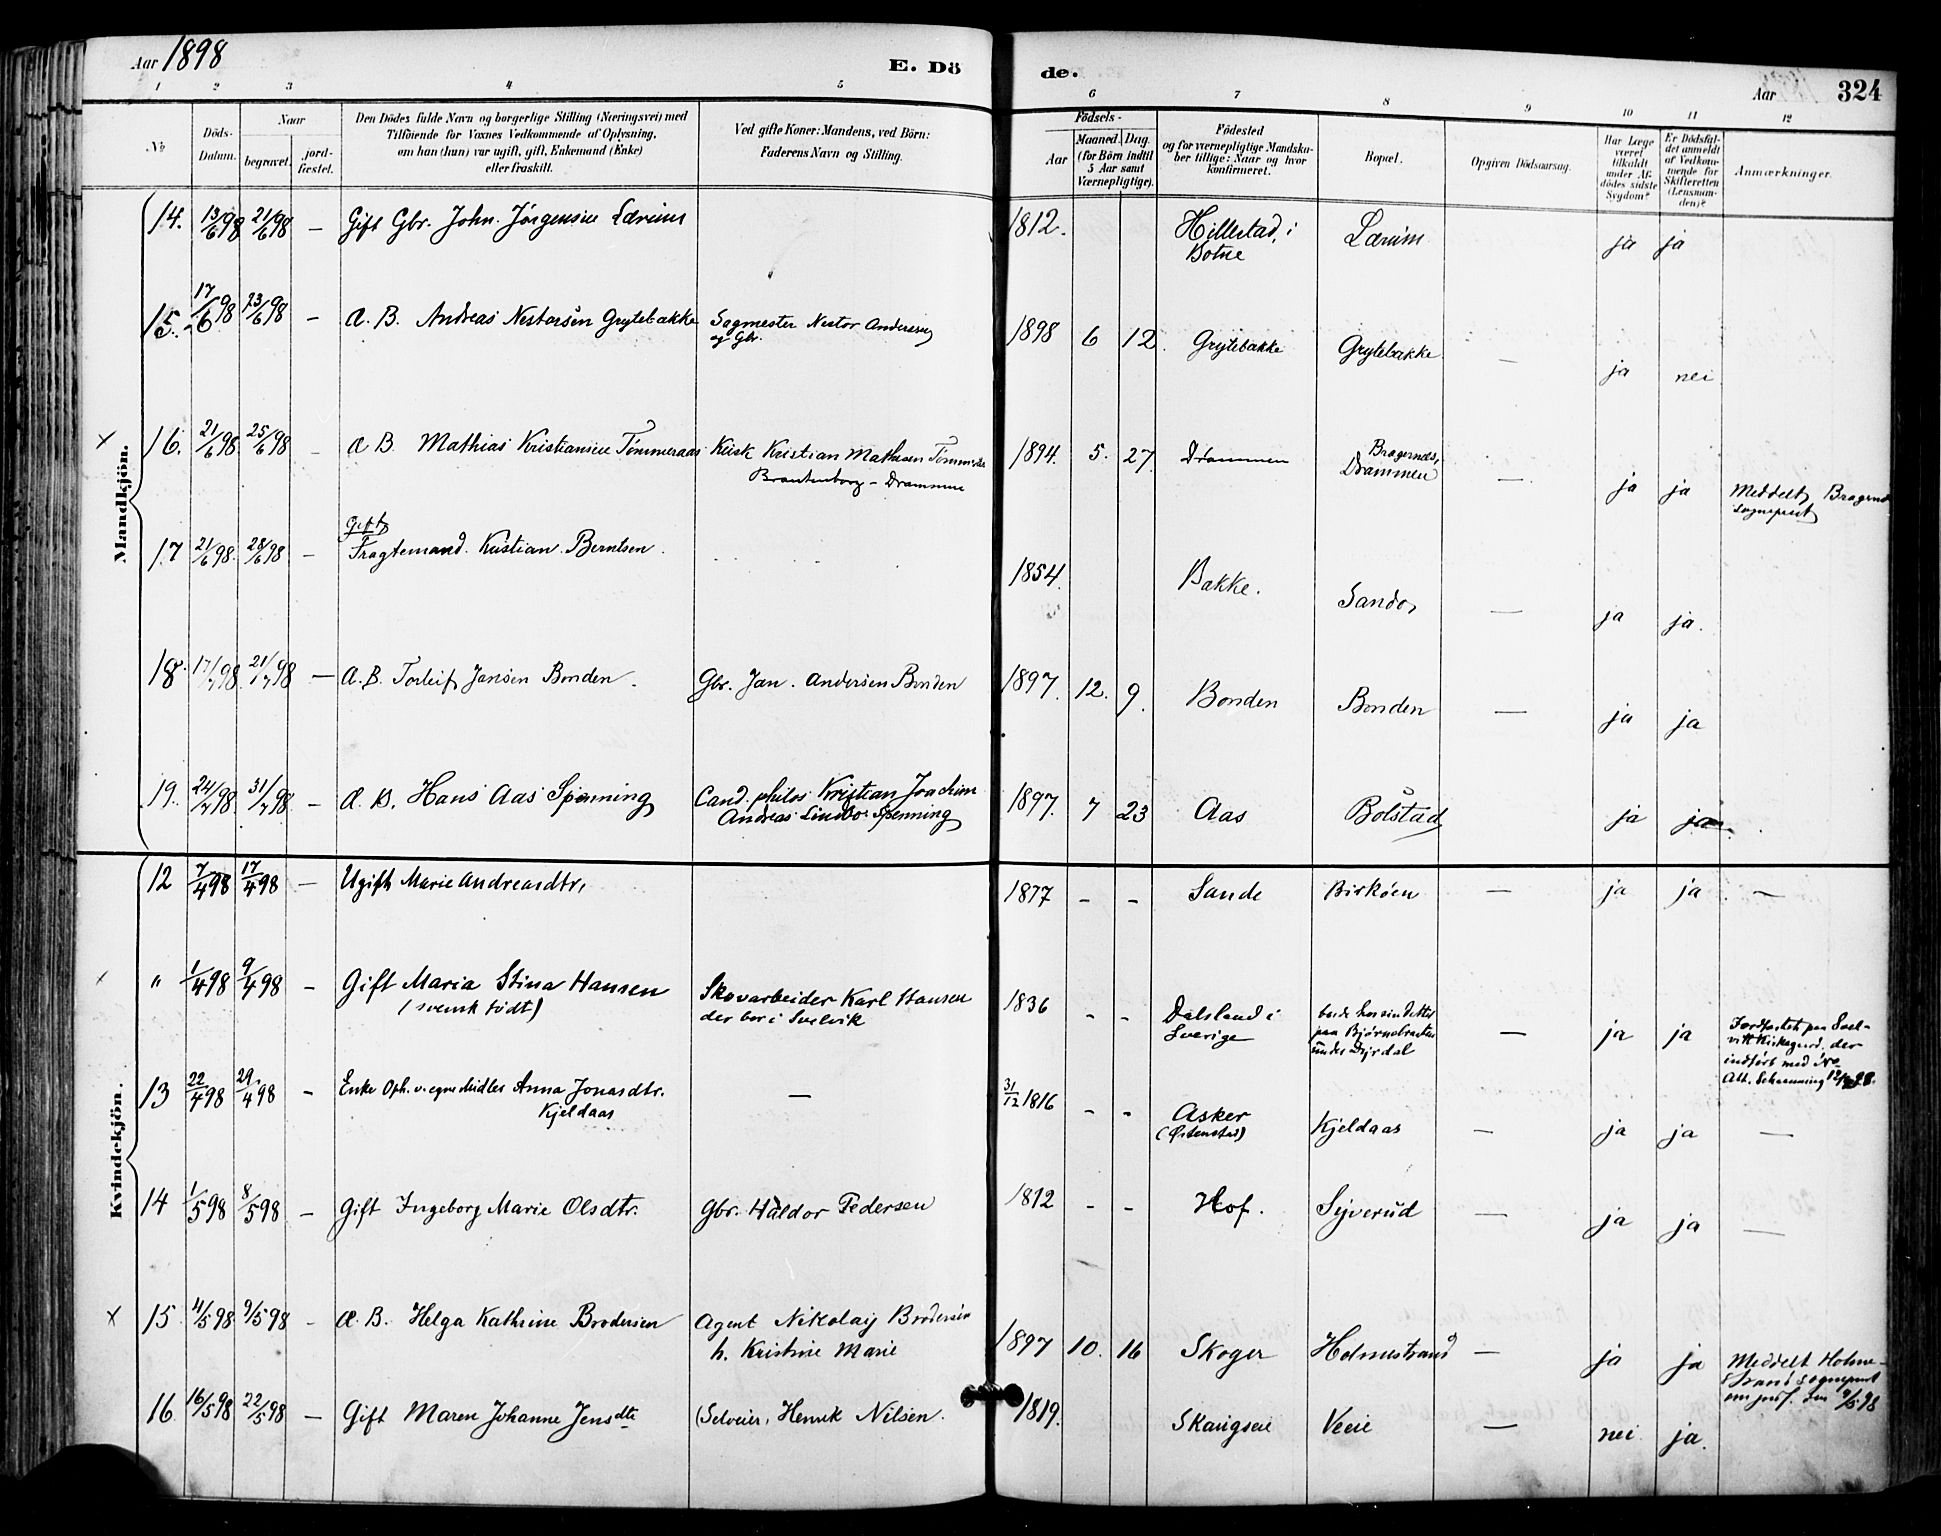 Aar 1898 E. Döde. Aar 324
1 2 3 4 5 6 7 8 9 10 11 12
No
Döds-Datum.
Naar
begravet. jordfæstet.
Den Dödes fulde Navn og borgerlige Stilling (Næringsvei) med
Tilföiende for Voxnes Vedkommende af Oplysning,
om han (hun) var ugift, gift, Enkemand (Enke)
eller fraskilt.
Ved gifte Koner: Mandens, ved Börn:
Faderens Navn og Stilling.
Födsels-
Aar
Maaned. Dag.
(for Börn indtil
5 Aar samt
Værnepligtige).
Födested
og for værnepligtige Mandska-
ber tillige: Naar og hvor
konfirmeret.
Bopæl.
Opgiven Dödsaarsag.
Har Læge
været
tilkaldt
under Af-
dödes sidste
Sygdom?
Er Dödsfal-
det anmeldt
af Vedkom-
mende for
Skifteretten
(Lensman-
den)?
Anmærkninger.
Mandkjön.
14. 13/6 98 21/6 98 — Gift Gbr. John Jørgensen Lærum 1812. Hillestad, i Lærum ja ja
Botne
15. 17/6 98 23/6 98 — Æ. B. Andreas Nestorsen Grytebakke Sagmester Nestor Andersen 1898 6 12 Grytebakke Grytebakke — ja nei
og Gbr.
x 16. 21/6 98 25/6 98 — Æ B. Mathias Kristiansen Tømmeraas Kusk Kristian Mathisen 1894. 5. 27 Drammen Bragernæs, — ja ja Meddelt Bragernæs
Brantenborg – Drammen Drammen sognepræst
17 21/6 98. 28/6 98 — Gift
Fragtemand. Kristian Berntsen. 1854. Bakke. Sando — ja ja.
18. 17/7 98. 21/7 98 — Æ. B. Torleif Jansen Bonden Gbr. Jan. Andersen Bonden 1897. 12. 9. Bonden Bonden — ja ja
19. 24/7 98. 31/7 98 — Æ. B. Hans Aas Spenning Cand. philos Kristian Joachim 1897. 7 23 Aas Bolstad ja ja
Andreas Lindboe Spenning
Kvindekjön.
12 7/4 98 17/4 98 — Ugift Marie Andreasdtr. 1877 - - Sande Bisköen — ja ja —
x " 1/4 98 9/4 98 — Gift Maria Stina Hansen Skovarbeider Karl Hansen 1836 - - Dalsland i — ja ja
(svensk födt) der bor i Svelvik Sverige
13 22/4 98 29/4 98 — Enke Oph. v. egne Midler Anna Jonasdtr. — 31/12 1816 - - Asker Kjeldaas — ja ja —
Kjeldaas (Østenstad)
14 1/5 98 8/5 98 — Gift Ingeborg Marie Olsdtr. Gbr. Haldor Pedersen 1812 - - Hof. Syverud — ja ja —
x 15 4/5 98 9/5 98 - Æ. B. Helga Kathrine Brodersen Agent Nikolaij Brodersen 1897 10. 16 Skoger Holmestrand — ja ja Meddelt Holme-
h. Kristine Marie strand sognepræst
om jordf. den 9/5 98
16 16/5 98 22/5 98 — Gift Maren Johanne Jensdtr (Selveier, Henrik Nilsen. 1819. Veeie — nei ja.